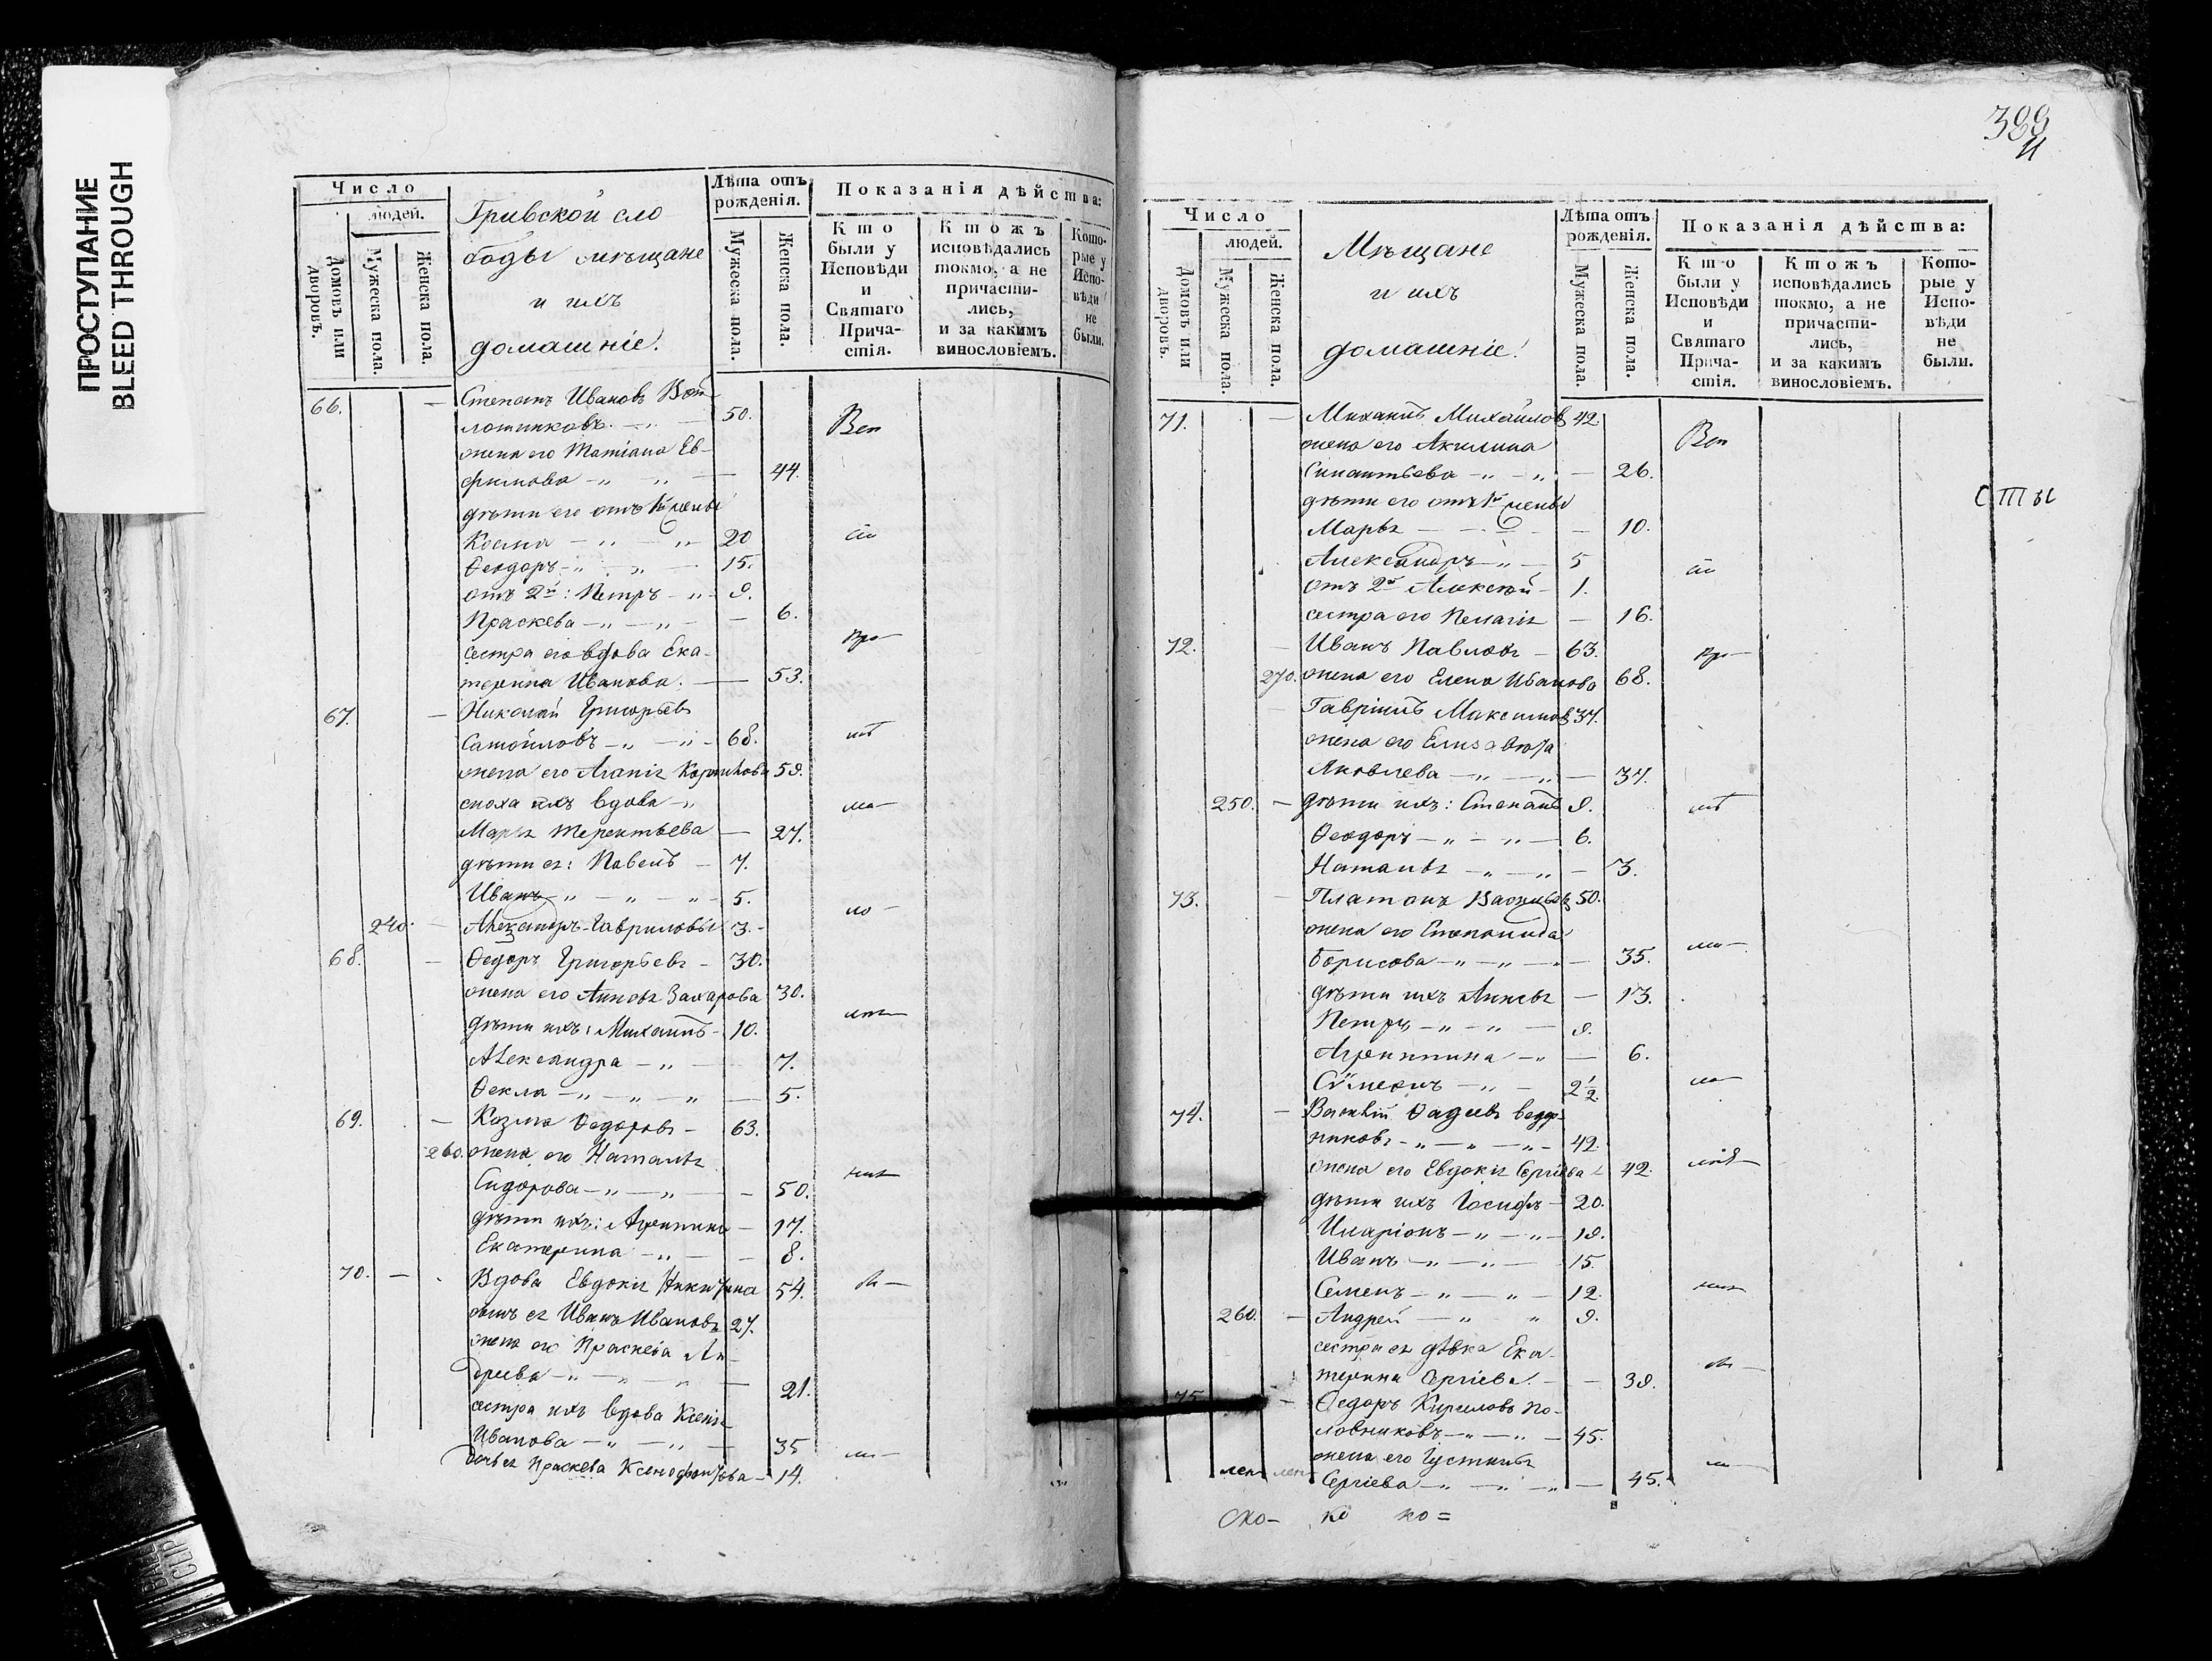 ПРОСТУПАНИЕ
BLEED THROUGH
Число
людей.
Домовъ или дворовъ.
Мужеска пола.
Женска пола.
Гривской сло
боды мѣщане
и ихъ
домашніе.
Лѣта отъ рожденія.
Мужеска пола.
Женска пола.
Показанія дѣйства:
Кто были у Исповѣди и Святаго Прича-стія.
Ктожъ исповѣдались токмо, а не причасти-лись, и за какимъ винословіемъ.
Кото-рые у Испо-вѣди не были.
66. Степанъ Ивановъ
50.
жена его Татіана Ев-
фимова 44.
дѣти его отъ 1й жены
Косма 20
Ѳеодоръ 15.
отъ 2й: Петръ 9.
Праскева 6.
сестра его вдова Ека-
терина Иванова. 53.
67. Николай Григорьевъ
Самойловъ 68.
жена его Агапія 59.
сноха ихъ вдова
Марья Терентьева 27.
дѣти ея: Павелъ 7.
Иванъ 5.
240. Александръ Гавриловы 3.
68. Ѳедоръ Григорьевъ 30.
жена его Анна Захарова 30.
дѣти ихъ: Михаилъ 10.
Александра 7.
Ѳекла 5.
69. Козма Ѳедоровъ 63.
260. жена его Наталія
Сидорова 50.
дѣти ихъ: Агрипина 17.
Екатерина 8.
70. Вдова Евдокія Никитина 54.
сынъ ея Иванъ Ивановъ 27.
жена его Праскева Ан-
дреева 21.
сестра ихъ вдова Ксенія
Иванова 35
дочь ея Праскева Ксенофонтова 14.
Число
людей.
Домовъ или дворовъ.
Мужеска пола.
Женска пола.
Мѣщане
и ихъ
домашніе.
Лѣта отъ рожденія.
Мужеска пола.
Женска пола.
Показанія дѣйства:
Кто были у Исповѣди и Святаго Прича-стія.
Ктожъ исповѣдались токмо, а не причасти-лись, и за какимъ винословіемъ.
Кото-рые у Испо-вѣди не были.
71. Михаилъ Михайловъ 42
жена его Акилина
26.
дѣти его отъ 1й жены
Марья 10.
Александръ 5
отъ 2й Алексѣй 1.
сестра его Пелагія 16.
72. Иванъ Павловъ 63.
270. жена его Елена Иванова 68.
Гавріилъ Максимовъ 37.
жена его Елисавета
Яковлева 37.
250. дѣти ихъ: Степанъ 9.
Ѳеодоръ 6.
Наталія 3.
73. Платонъ Васильевъ 50.
жена его Степанида
Борисова 35.
дѣти ихъ Анна 13.
Петръ 9.
Агрипина 6.
Сѵмеонъ 2 1/2.
74. Василій Ѳадеевъ ведер-
никовъ 42.
жена его Евдокія Сергіева 42.
дѣти ихъ Іосифъ 20.
Иларіонъ 19.
Иванъ 15
Семенъ 12.
260. Андрей 9.
сестра ея дѣвка Ека-
терина Сергіева. 39.
75. Ѳедоръ Кириловъ по-
ловниковъ 45.
жена его Іустинія
Сергіева 45.